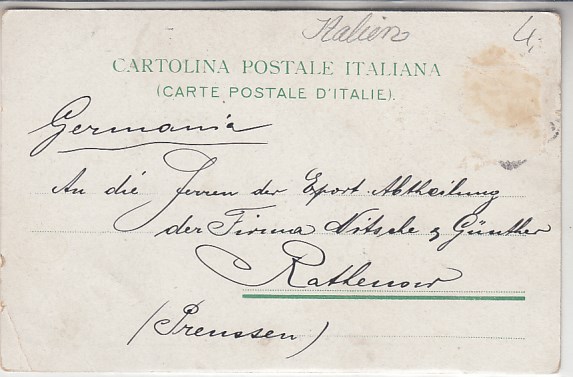 Italien 4,
CARTOLINA POSTALE ITALIANA
(CARTE POSTALE D'ITALIE).
Germania
An die Herren der Export-Abtheilung
der Firma Nitsche & Günther
Rathenow
(Preussen)